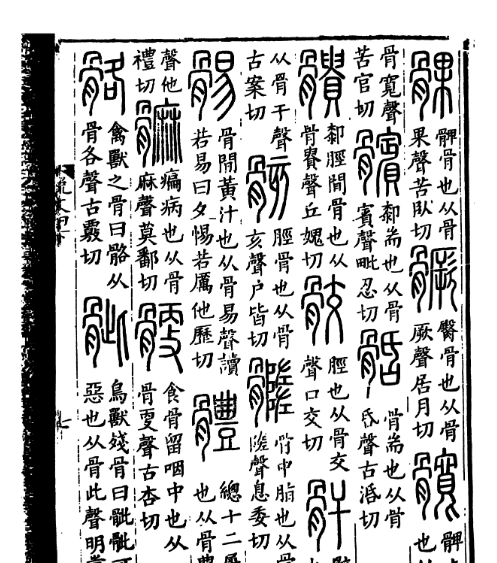 髁髀骨也从骨
果聲苦臥切
𩪗臀骨也从骨
厥聲居月切
髖髀
也
骨寬聲
苦官切
髕厀耑也从骨
賓聲毗忍切
𩨨骨耑也从骨
昏聲古活切
䯣厀脛間骨也从
骨貴聲丘媿切
骹脛也从骨交
聲口交切
骭
从骨干聲
古案切
骸脛骨也从骨
亥聲户皆切
髓骨中脂也从骨
隓聲息委切
䯜骨閒黃汁也从骨易聲讀
若易曰夕惕若厲他歷切
體總十二屬
也从骨豊
聲他
禮切
䯢㾫病也从骨
麻聲莫鄱切
骾食骨留咽中也从
骨㪅聲古杏切
骼禽獸之骨曰骼从
骨各聲古覈切
骴鳥獸殘骨曰骴骴可
惡也从骨此聲明堂